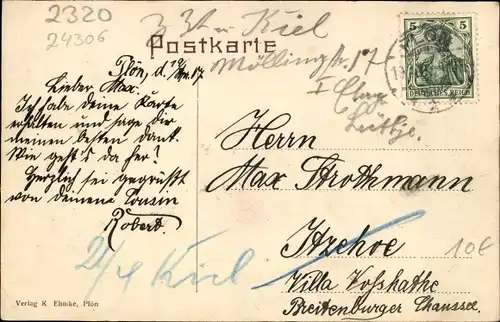 2320
24306
z. Zt. Kiel
Postkarte
Möllingstr. 17
I Etage
Lüthje.
5
DEUTSCHES REICH
Plön, d. 19/
Lieber Max.
Ich habe deine Karte
erhalten und sage dir
meinen besten dank.
Wie geht's da her?
Herzlich sei gegrüßt
von deinem Cousin
Robert.
Herrn
Max Strothmann
Itzehoe
Villa Voßkathe
Breitenburger Chaussee.
Kiel
10€
Verlag K Ehmke, Plön